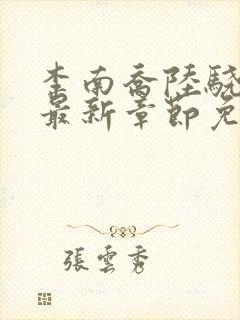 李南喬陸驍
最新章節免
張雲秀